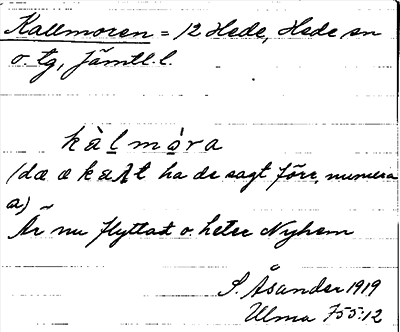 Kallmoren = 12 Hede, Hede sn
o. tg, Jämtl. l.
kàlmóra
(dæ æ kalt ha de sagt förr, numera
a)
Är nu flyttat o. heter Nyhem
S. Åsander 1919
Ulma 755:12